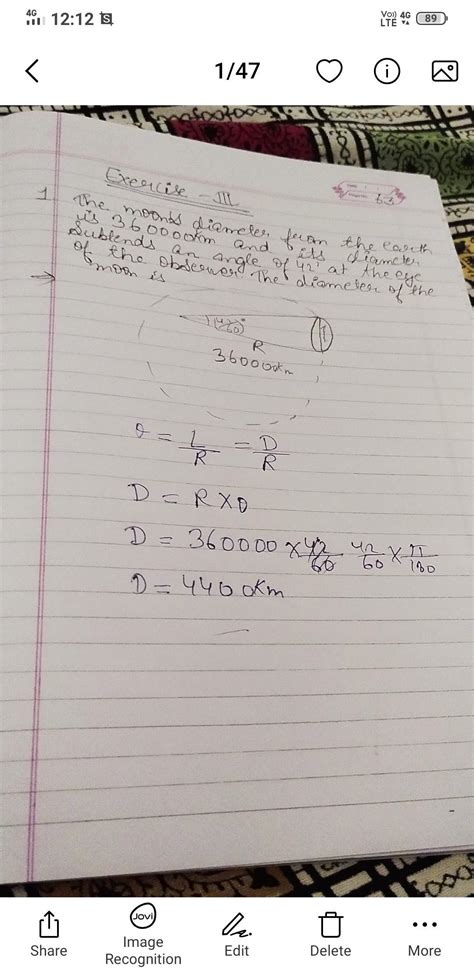 4G 12:12 Vo)) LTE 4G 89
1/47
Exercise - III
1 The moon's diameter from the earth
is 360000km and its diameter
Subtends an angle of 42' at the eye
of the observer The diameter of the
moon is
(42/60)°
R
360000km
θ = L/R = D/R
D = R×θ
D = 360000 × 42/60 42/60 × π/180
D = 4400km
Share
Jovi
Image
Recognition
Edit
Delete
More